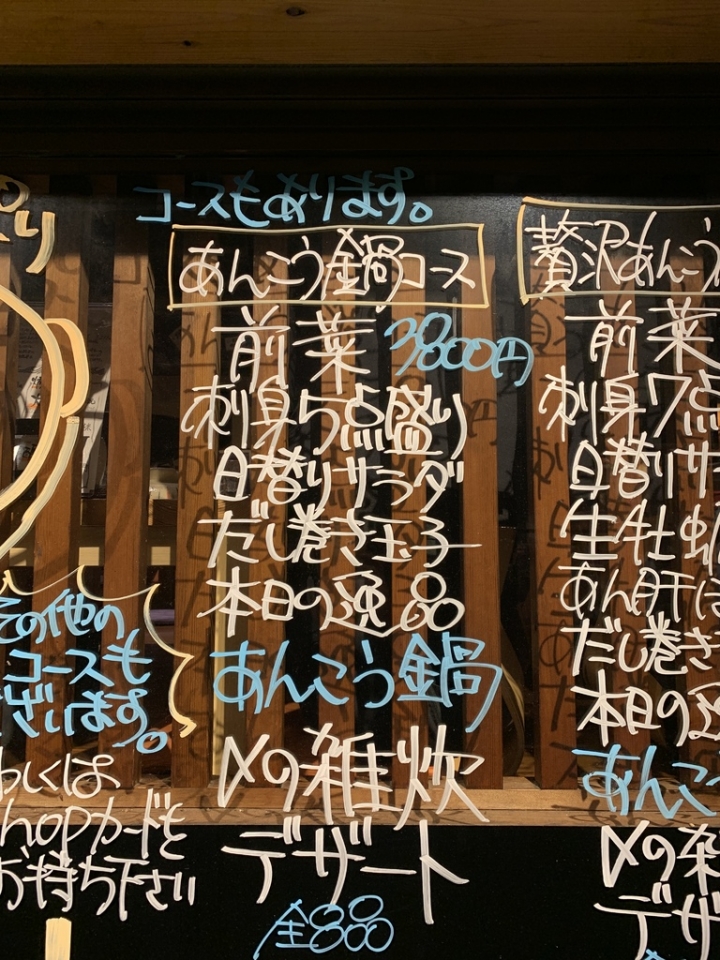 コースもあります。
あんこう鍋コース
前菜 3800円
刺身5点盛り
日替りサラダ
だし巻き玉子
本日の逸品
あんこう鍋
〆の雑炊
デザート
全8品
贅沢あんこう
前菜
刺身7点
日替りサ
生牡蛎
あん肝
だし巻き
本日の逸
あんこ
〆の雑
デザ
その他の
コースも
ざいます。
わしくは
hopカードを
お持ち下さい